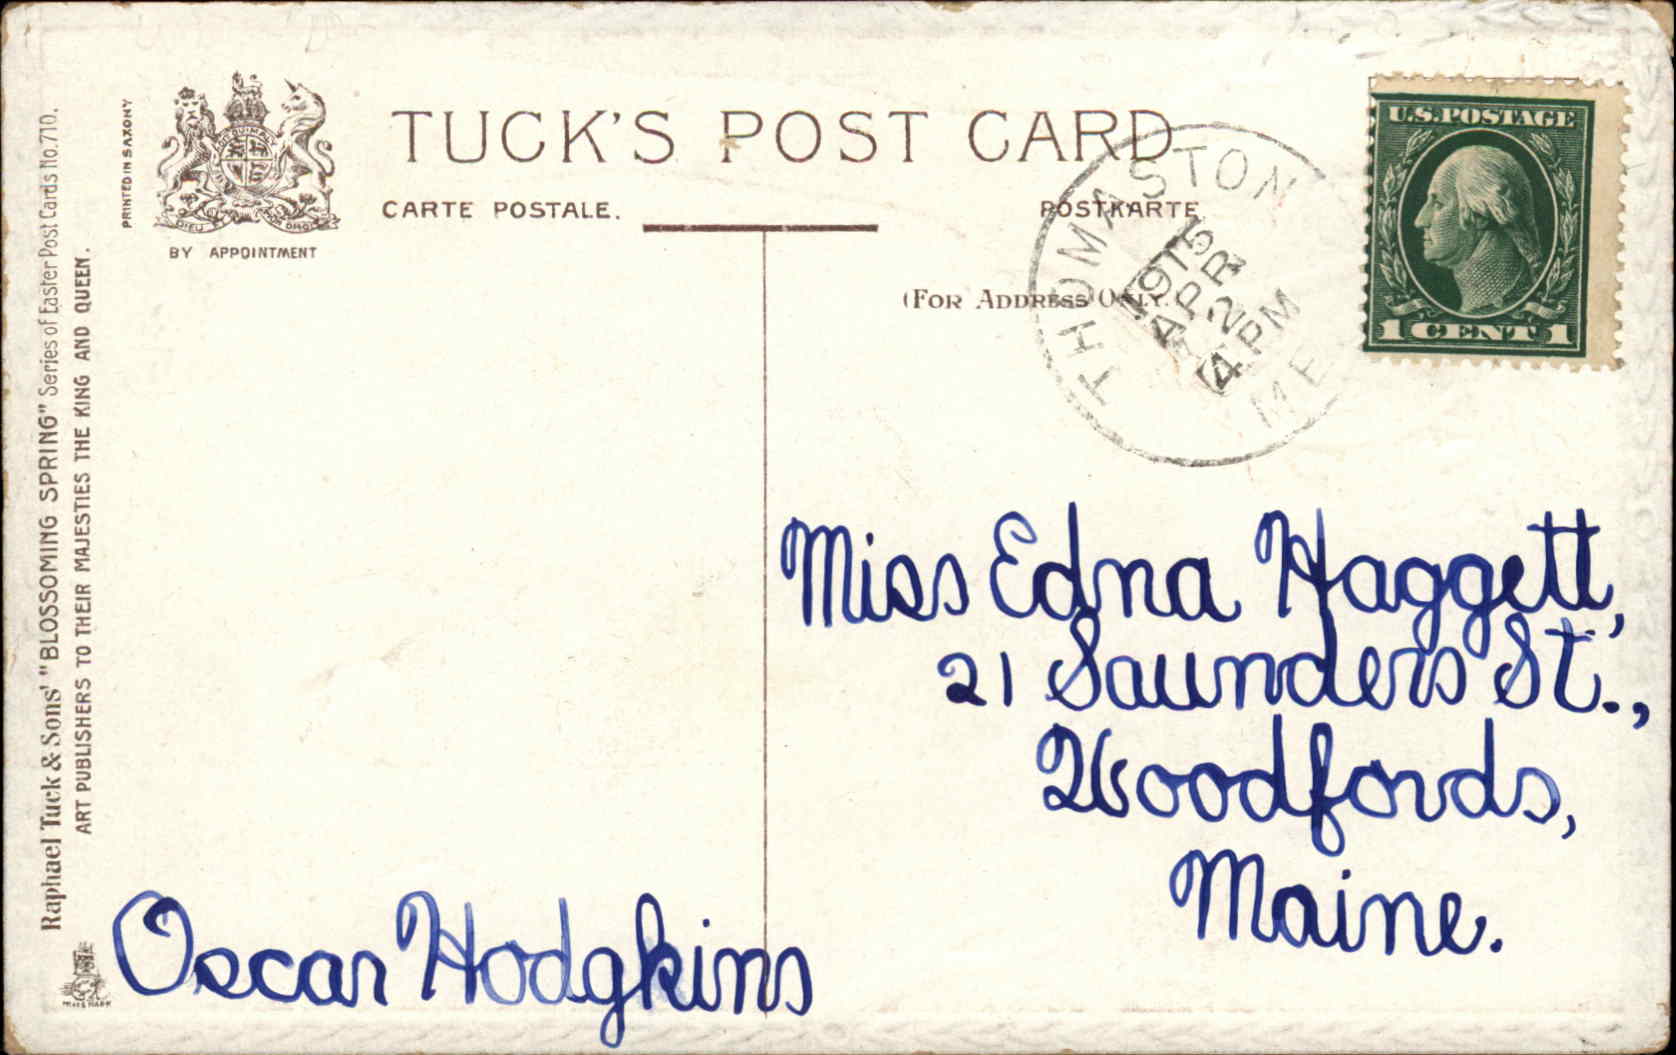 TUCK'S POST CARD
CARTE POSTALE.
POSTKARTE
(FOR ADDRESS ONLY.)
BY APPOINTMENT
PRINTED IN SAXONY
Raphael Tuck & Sons' "BLOSSOMING SPRING" Series of Easter Post Cards No. 710.
ART PUBLISHERS TO THEIR MAJESTIES THE KING AND QUEEN.
THOMASTON
1915
APR
2
4 PM
ME
U.S. POSTAGE
1 CENT 1
Miss Edna Haggett,
21 Saunders St.,
Woodfords,
Maine.
Oscar Hodgkins